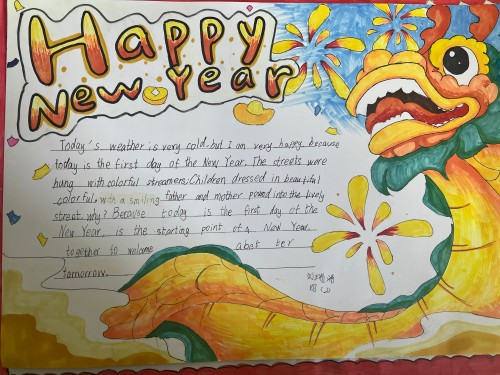 Happy
New Year
Today's weather is very cold, but I am very happy because
today is the first day of the New Year. The streets were
hung with colorful streamers; Children dressed in beautiful
colorful, with a smiling father and mother poured into the lively
street. why? Because today is the first day of the
New Year, is the starting point of a New Year.
together to welcome abet ter
tomorrow.